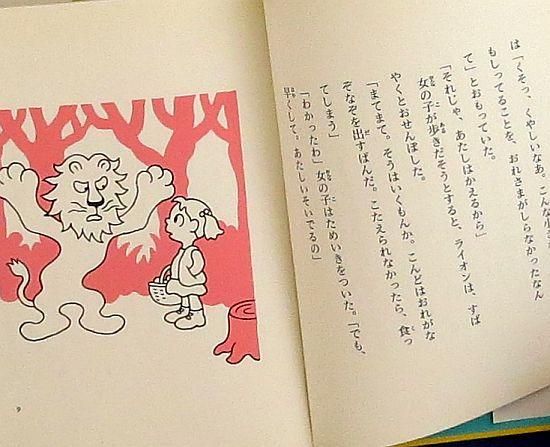 は「くそっ、くやしいなあ。こんな小さ
もしってることを、おれさまがしらなかったなん
て」とおもっていた。
「それじゃ、あたしはかえるから」
女の子が歩きだそうとすると、ライオンは、すば
やくとおせんぼした。
「まてまて。そうはいくもんか。こんどはおれがな
ぞなぞを出すばんだ。こたえられなかったら、食っ
てしまう」
「わかったわ」女の子はためいきをついた。「でも、
早くして。あたしいそいでるの」
9